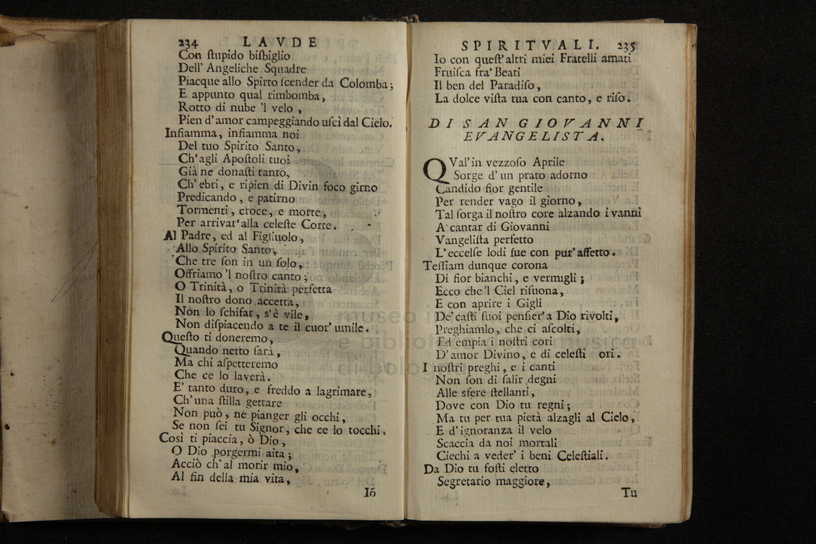 234 LAVDE
Con ſtupido biſbiglio
Dell' Angeliche Squadre
Piacque allo Spirto ſcender da Colomba;
E appunto qual rimbomba,
Rotto di nube 'l velo,
Pien d'amor campeggiando uſcì dal Cielo.
Infiamma, infiamma noi
Del tuo Spirito Santo,
Ch'agli Apoſtoli tuoi
Già ne donaſti tanto,
Ch' ebri, e ripien di Divin foco girno
Predicando, e patirno
Tormenti, croce, e morte,
Per arrivar' alla celeſte Corte.
Al Padre, ed al Figliuolo,
Allo Spirito Santo,
Che tre ſon in un ſolo,
Offriamo 'l noſtro canto;
O Trinità, o Trinità perfetta
Il noſtro dono accetta,
Non lo ſchifar, s'è vile,
Non diſpiacendo a te il cuor' umile.
Queſto ti doneremo,
Quando netto ſarà,
Ma chi aſpetteremo
Che ce lo laverà.
E' tanto duro, e freddo a lagrimare,
Ch'una ſtilla gettare
Non può, ne pianger gli occhi,
Se non ſei tu Signor, che ce lo tocchi.
Così ti piaccia, ò Dio,
O Dio porgermi aita;
Acciò ch'al morir mio,
Al fin della mia vita,
Iò
SPIRITVALI. 235
Io con queſt'altri miei Fratelli amati
Fruiſca fra' Beati
Il ben del Paradiſo,
La dolce viſta tua con canto, e riſo.
DI SAN GIOVANNI
EVANGELISTA.
QVal'in vezzoſo Aprile
Sorge d'un prato adorno
Candido fior gentile
Per render vago il giorno,
Tal ſorga il noſtro core alzando i vanni
A cantar di Giovanni
Vangeliſta perfetto
L'eccelſe lodi ſue con pur' affetto.
Teſſiam dunque corona
Di fior bianchi, e vermigli;
Ecco che'l Ciel riſuona,
E con aprire i Gigli
De' caſti ſuoi penſier' a Dio rivolti,
Preghiamlo, che ci aſcolti,
Ed empia i noſtri cori
D'amor Divino, e di celeſti ori.
I noſtri preghi, e i canti
Non ſon di ſalir degni
Alle sfere ſtellanti,
Dove con Dio tu regni;
Ma tu per tua pietà alzagli al Cielo,
E d'ignoranza il velo
Scaccia da noi mortali
Ciechi a veder' i beni Celeſtiali.
Da Dio tu foſti eletto
Segretario maggiore,
Tu
museo in
e bibliot musica
di bologna